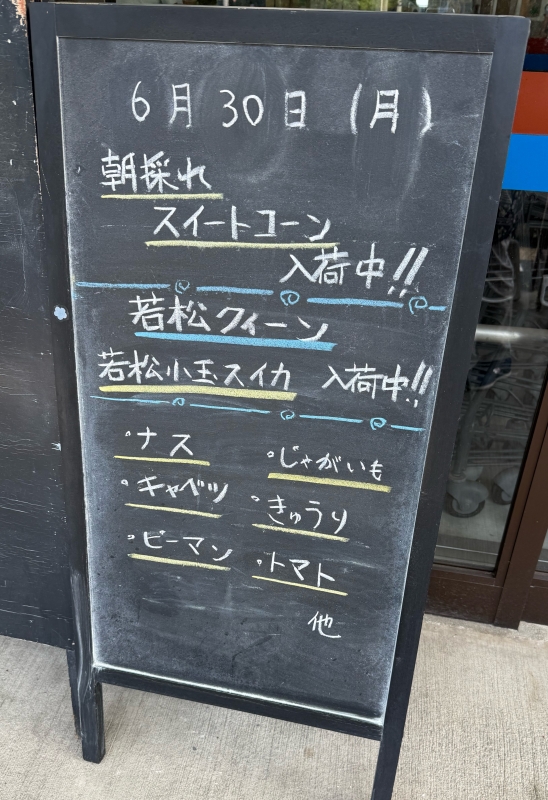 6月30日(月)
朝採れ
スイートコーン
入荷中!!
若松クィーン
若松小玉スイカ 入荷中!!
・ナス ・じゃがいも
・キャベツ ・きゅうり
・ピーマン ・トマト
他